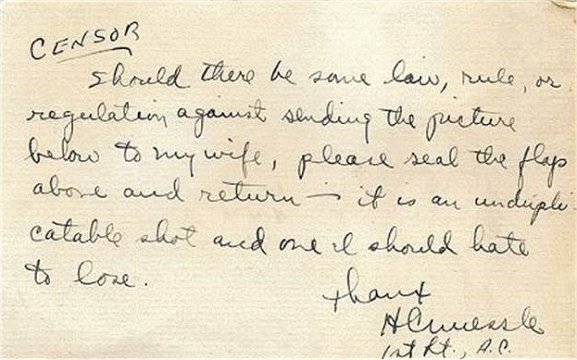 CENSOR
Should there be some law, rule, or
regulation against sending the picture
below to my wife, please seal the flap
above and return — it is an undupli-
catable shot and one I should hate
to lose.
Thanx
HCMuessle
1st Lt., A.C.